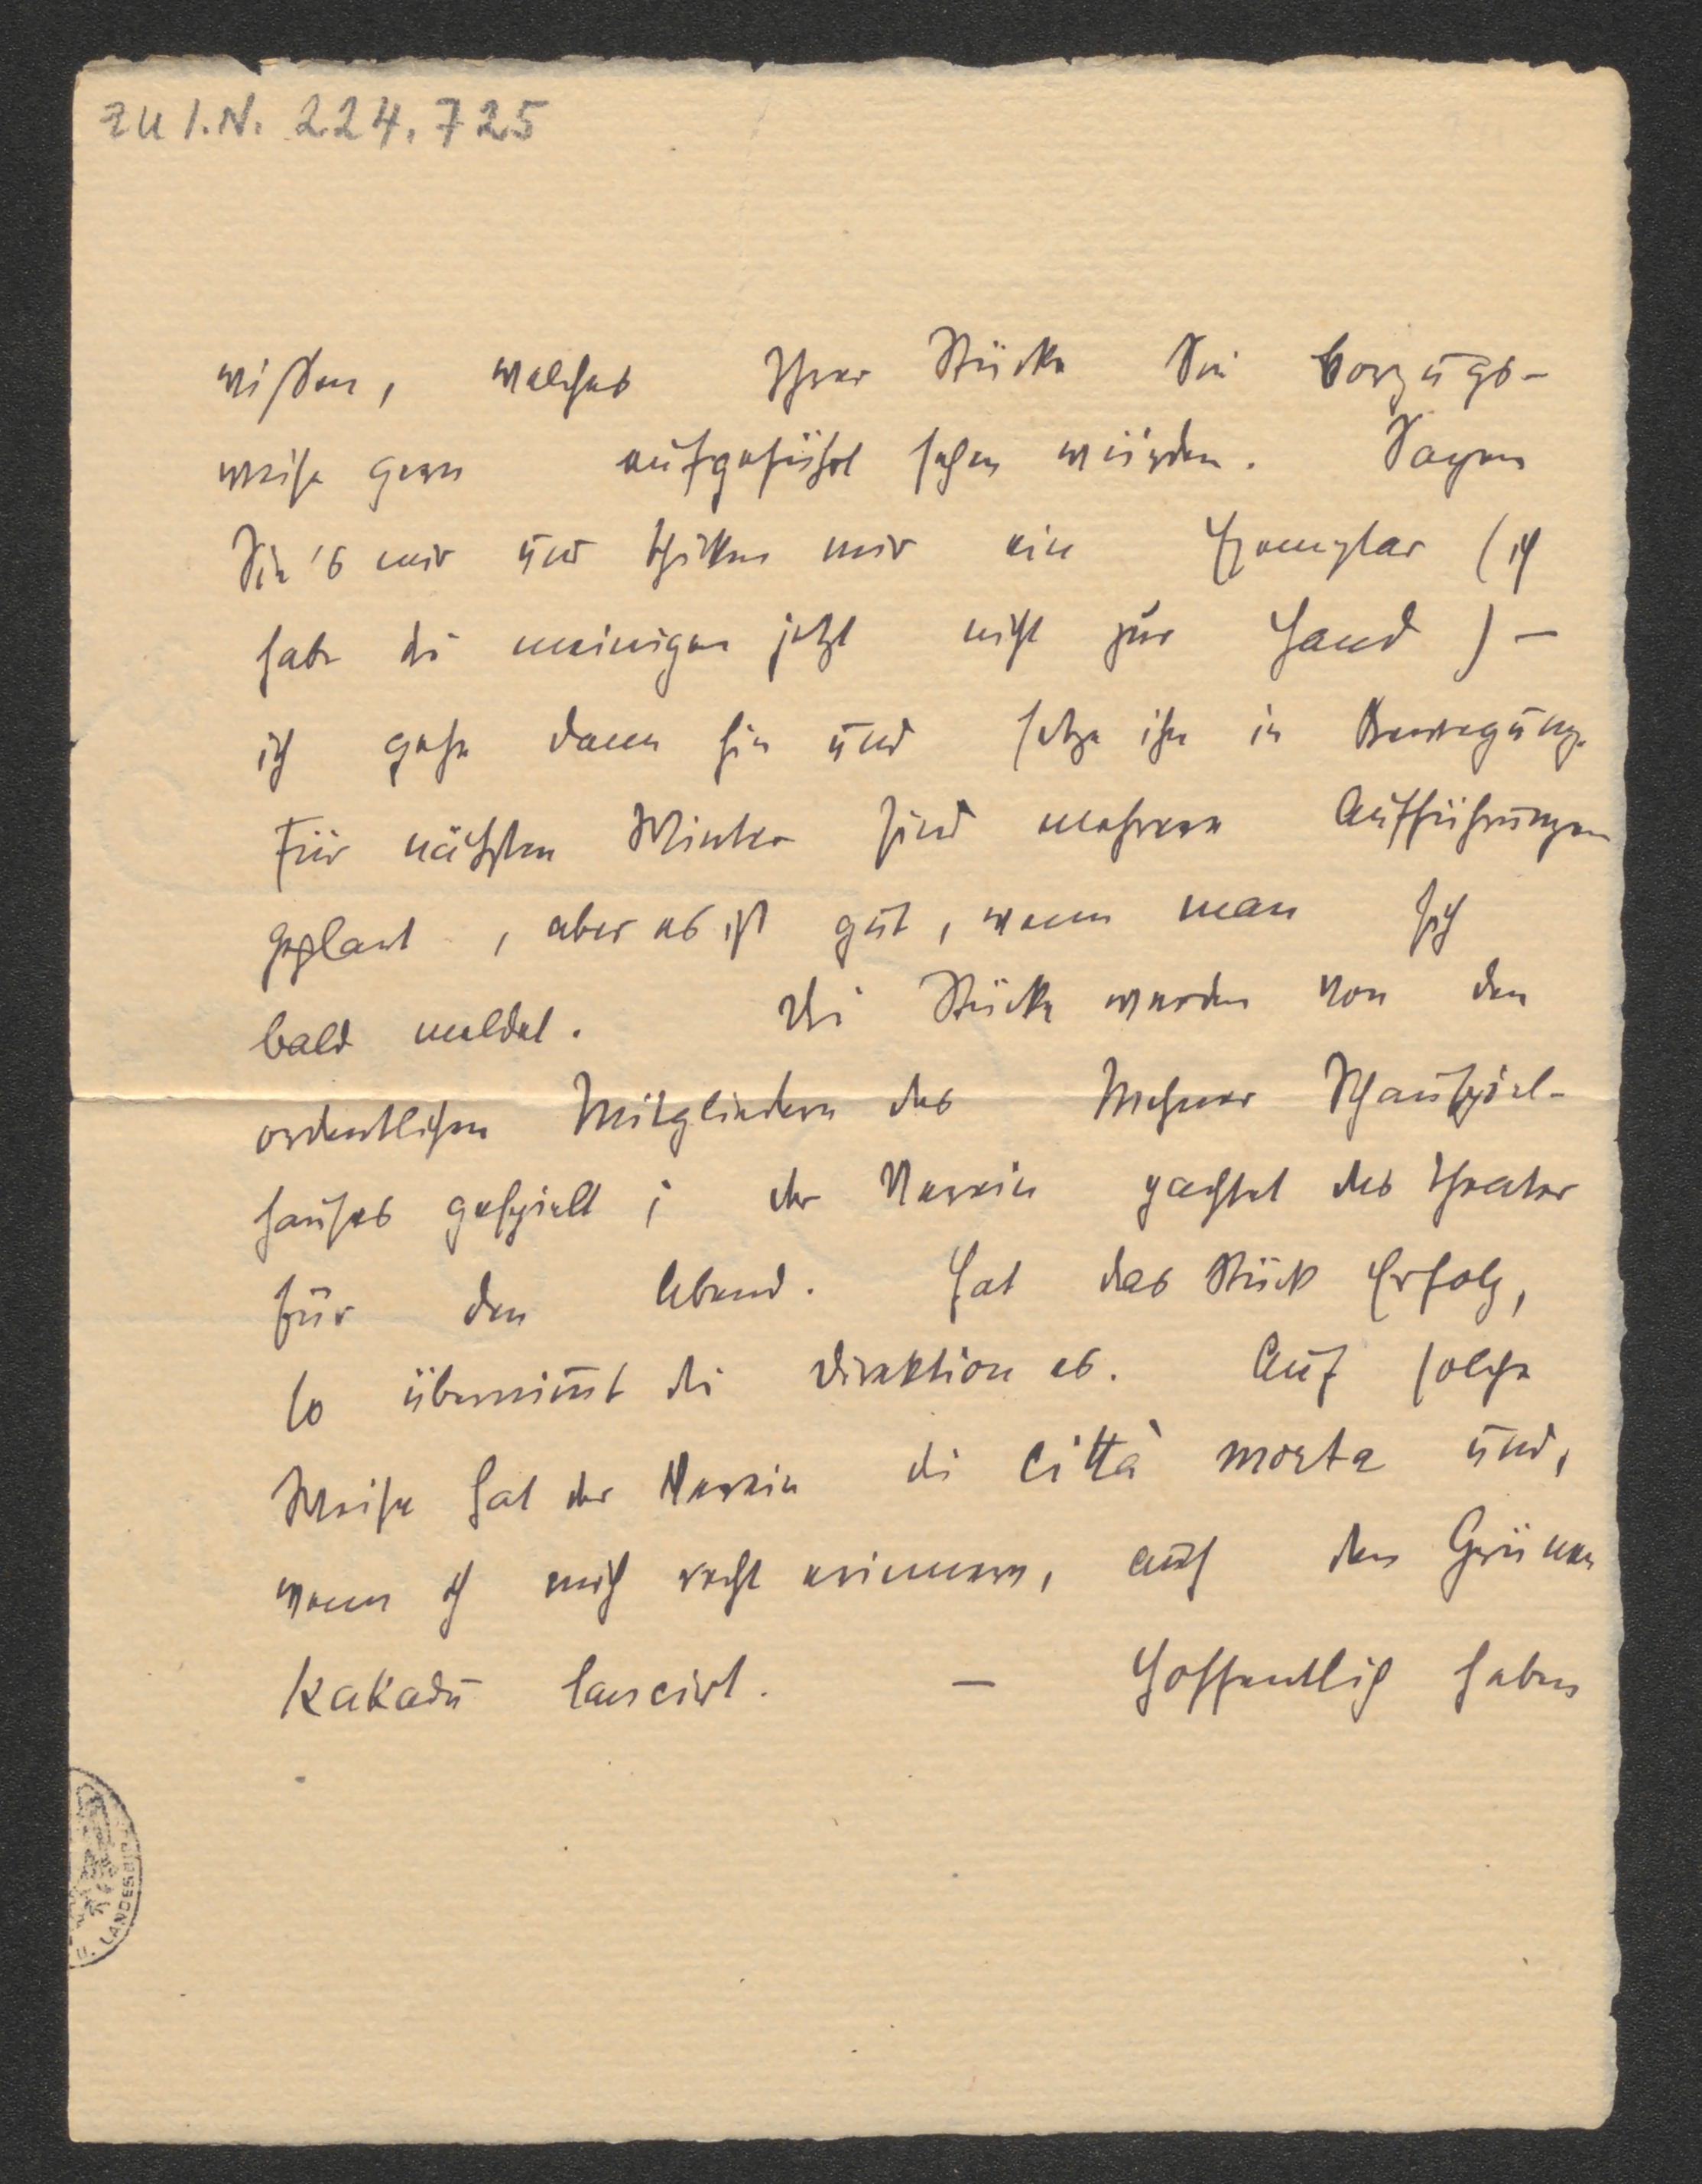 zu I.N. 224.725
wissen, welches Ihrer Stücke Sie vorzugs-
weise gern aufgeführt sehen würden. Sagen
Sie's mir und schicken mir ein Exemplar (ich
habe die meinigen jetzt nicht zur Hand) –
ich gehe dann hin und setze ihn in Bewegung.
Für nächsten Winter sind mehrere Aufführungen
geplant, aber es ist gut, wenn man sich
bald meldet. Die Stücke werden von den
ordentlichen Mitgliedern des Mchner Schauspiel-
hauses gespielt; der Verein pachtet das Theater
für den Abend. Hat das Stück Erfolg,
so übernim̄t die Direktion es. Auf solche
Weise hat der Verein die Città morta und,
wenn ich mich recht erinnere, auch den Grünen
Kakadu lancirt. – Hoffentlich haben
LANDESBIB